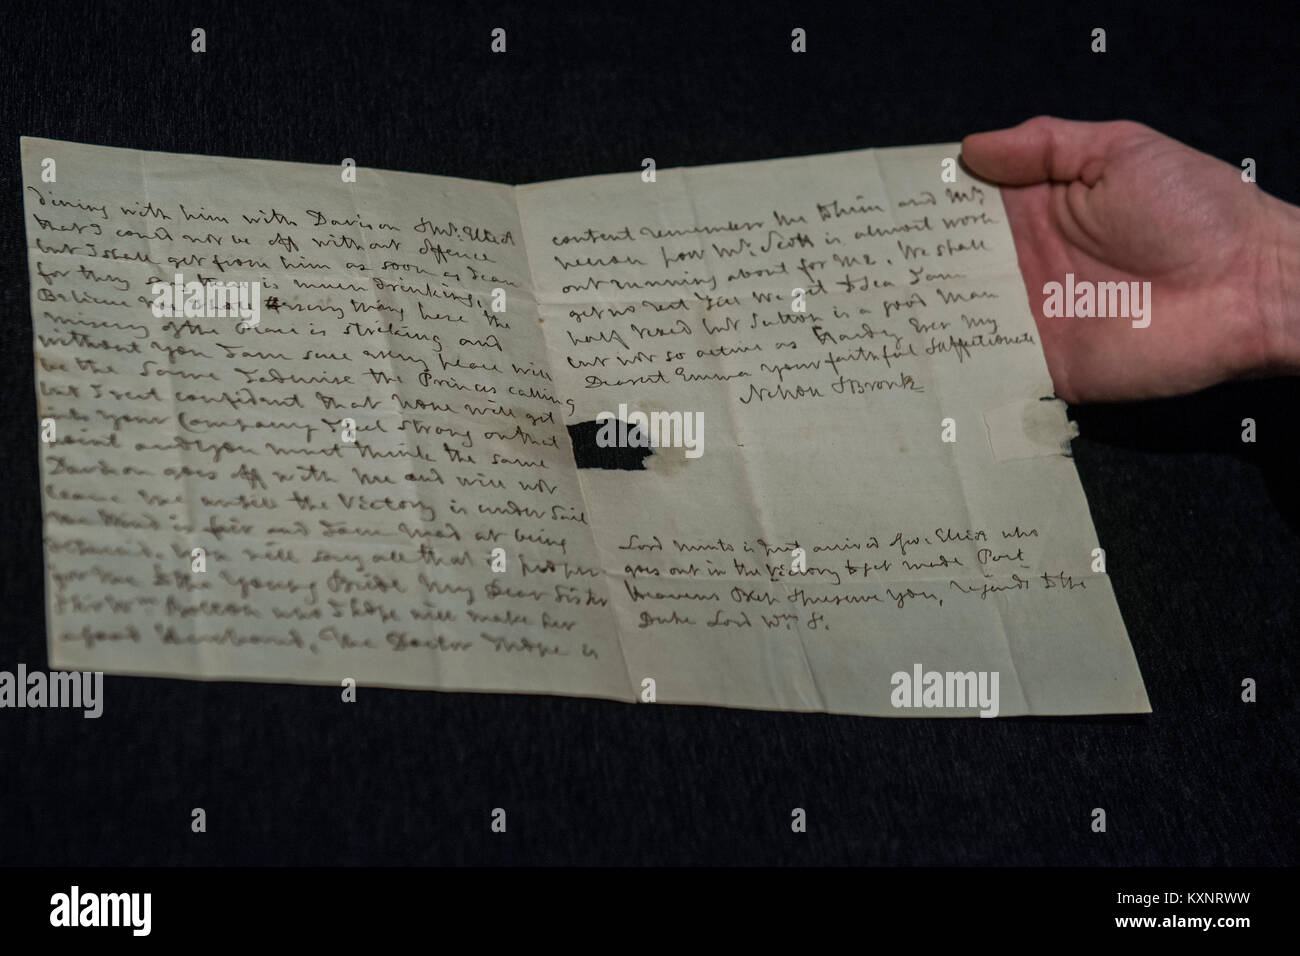 dining with him with Davison & Mr. Elliot
that I could not be off without offence
but I shall get from him as soon as I can
for they say there is much drinking,
Believe me my dear Emma
misery of the is striking and
without you I am sure every place will
be the same I advise the Princes calling
but I rest confident that none will get
into your Company I feel strong on that
point and you must think the same
Davison goes off with me and will not
leave me untill the Victory is under Sail
the Wind is fair and I am Mad at being
detained. You will say all that is proper
for me to the Young Bride My Dear Sister
& his Wm. Bolton who I hope will make her
a good Husband, the Doctor I hope is
content remember me to him and Mrs.
Nelson poor Mr. Scott is almost work
out running about for me. We shall
get no rest till we get to Sea I am
half Ready but Sutton is a good Man
but not so active as Hardy, Ever My
Dearest Emma your faithful & affectionate
Nelson & Bronte
Lord Minto is just arrived for Mr. Elliot who
goes out in the Victory to get made Post
Heavens Bless & preserve you, regards to the
Duke Lord Wm. &c.
alamy
Image ID: KXNRWW
www.alamy.com